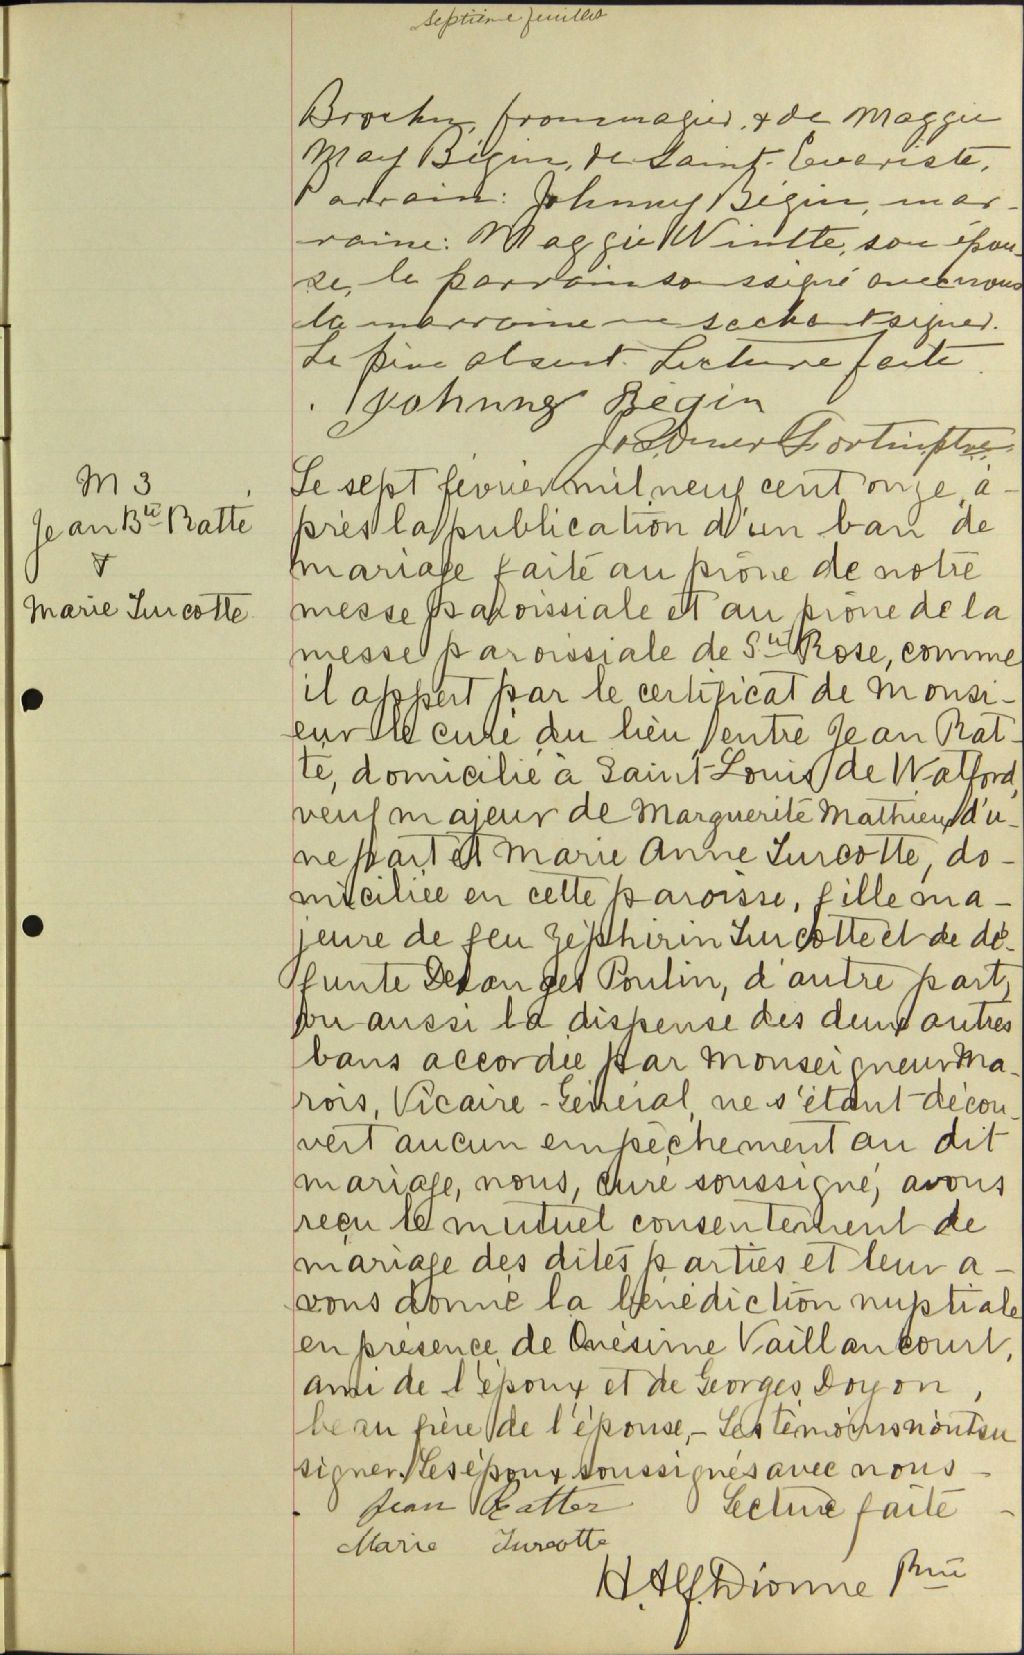 Septième feuillet
Brochu, frommagier, & de Maggie
May Bégin, de Saint-Evariste.
Parrain: Johnny Bégin, mar-
raine: Maggie Wintle, son épou-
se, le parrain soussigné avec nous
la marraine ne sachant signer.
Le père absent. Lecture faite.
Johnny Bégin
Jos. Omer Fortin ptre
M 3
Jean Bte Ratté
&
Marie Turcotte
Le sept février mil neuf cent onze, a-
près la publication d'un ban de
mariage faite au prône de notre
messe paroissiale et au prône de la
messe paroissiale de Ste Rose, comme
il appert par le certificat de Monsi-
eur le curé du lieu, entre Jean Rat-
té, domicilié à Saint-Louis de Watford,
veuf majeur de Marguerite Mathieu, d'u-
ne part et Marie Anne Turcotte, do-
miciliée en cette paroisse, fille ma-
jeure de feu Zéphirin Turcotte et de dé-
funte Desanges Poulin, d'autre part,
vu aussi la dispense des deux autres
bans accordée par Monseigneur Ma-
rois, Vicaire-Général, ne s'étant décou-
vert aucun empêchement au dit
mariage, nous, curé soussigné, avons
reçu le mutuel consentement de
mariage des dites parties et leur a-
vons donné la bénédiction nuptiale
en présence de Onésime Vaillancourt,
ami de l'époux et de Georges Doyon,
beau frère de l'épouse,- Les témoins n'ont su
signer. Les époux soussignés avec nous -
Jean Ratter Lecture faite -
Marie Turcotte
H. Alf. Dionne Ptre